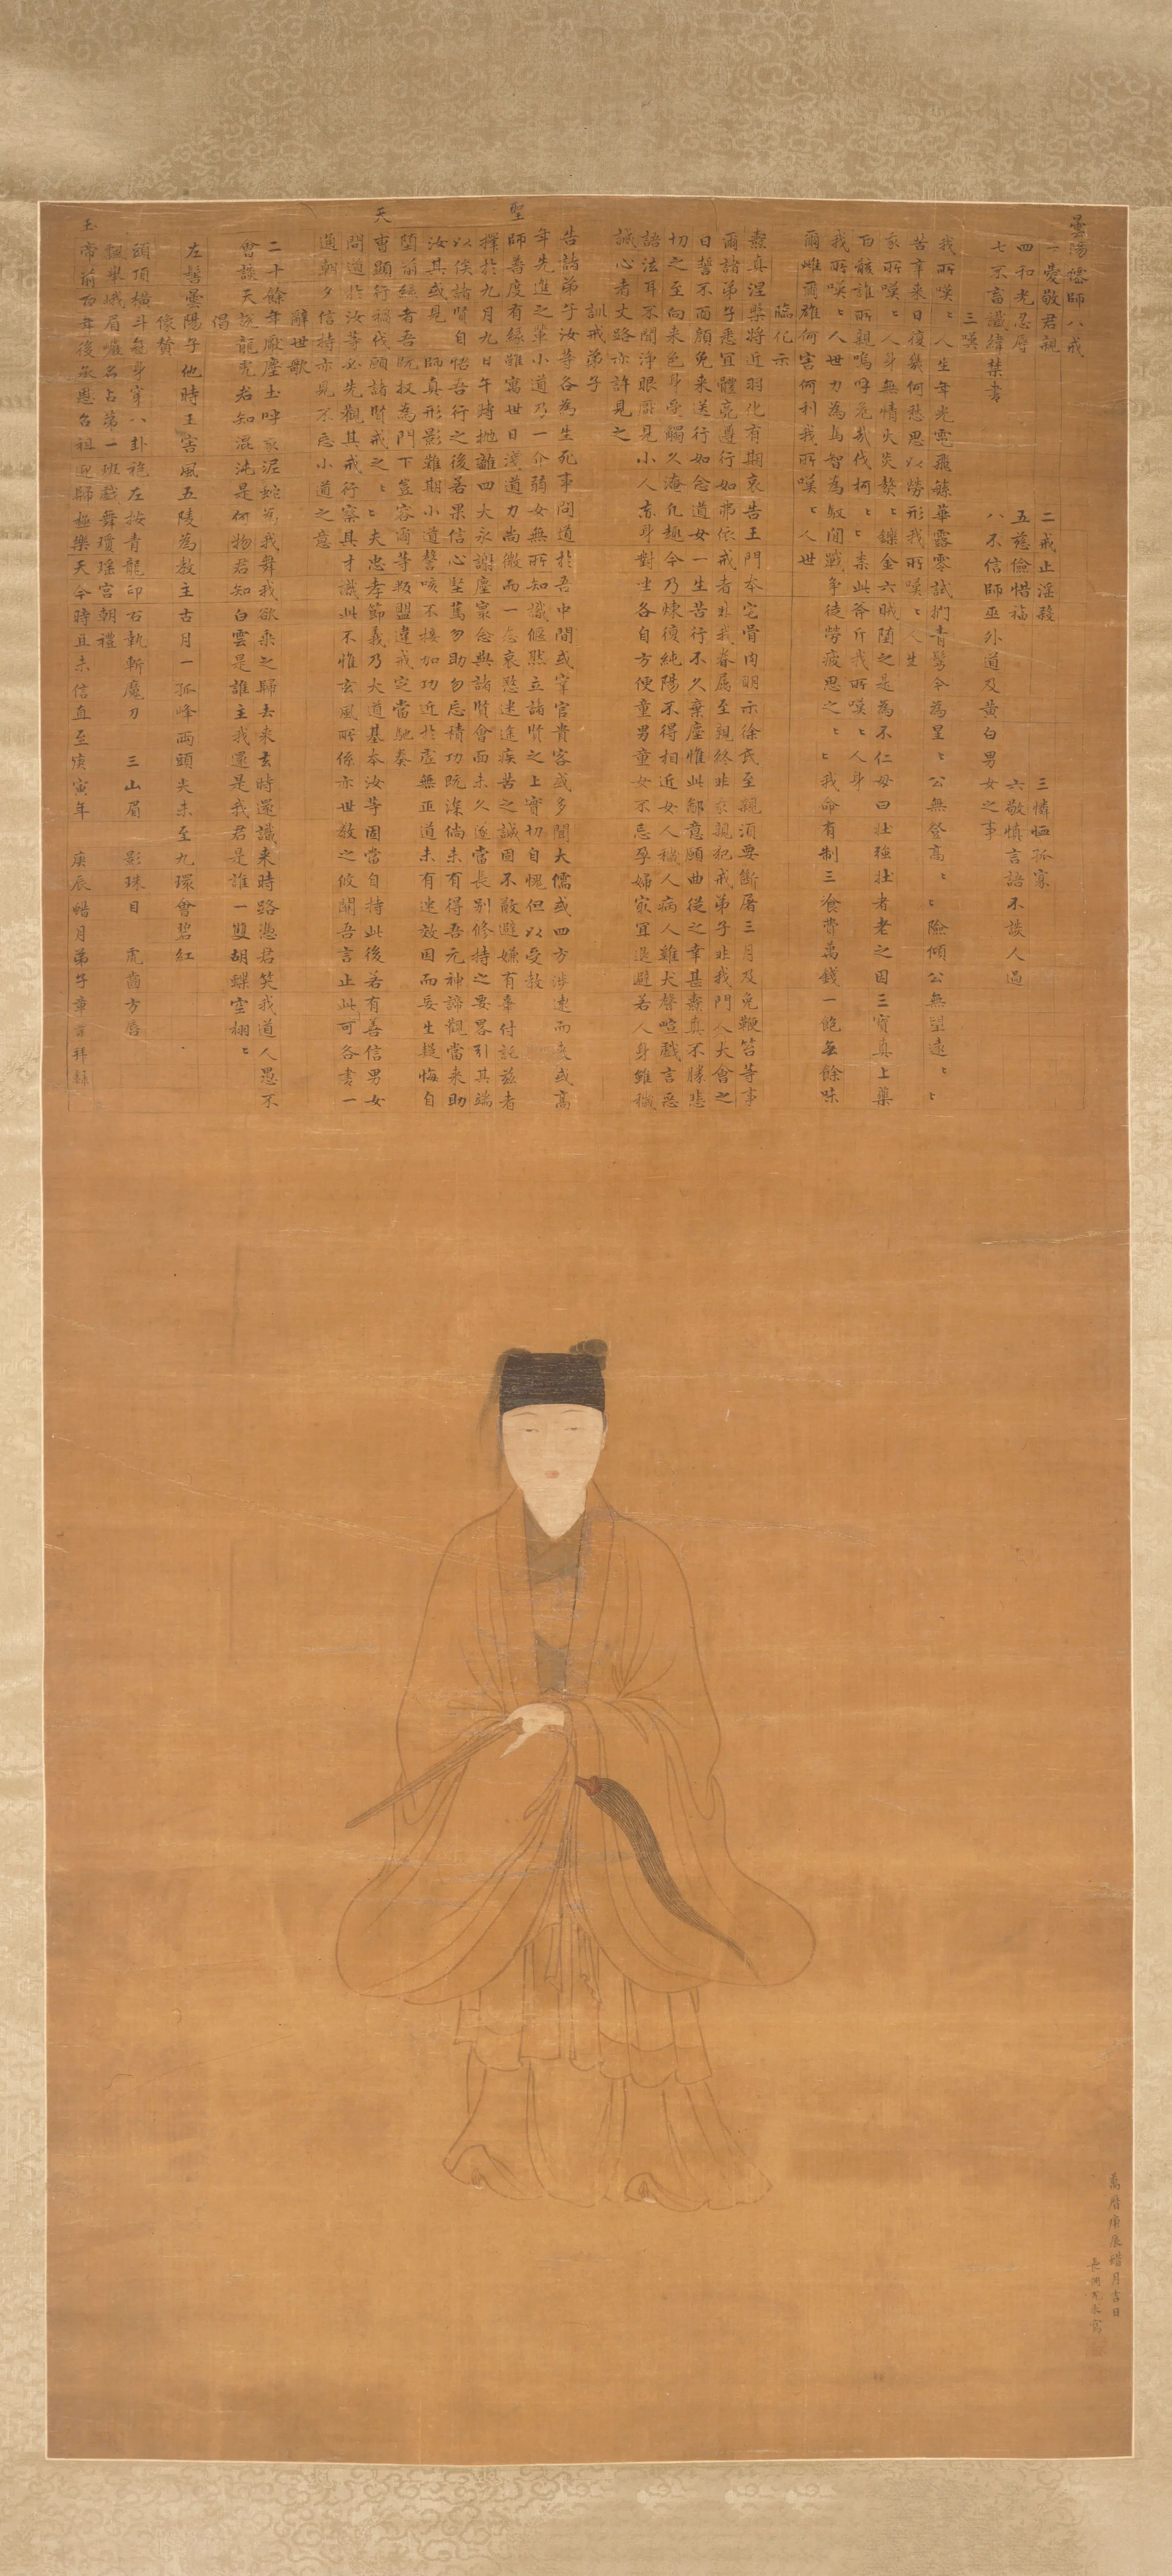 曇陽僊師八戒
一愛敬君親 二戒止淫殺 三憐恤孤寡
四和光忍辱 五慈儉惜福 六敬慎言語不談人過
七不畜讖緯禁書 八不信師巫外道及黃白男女之事
三嘆
我所嘆〻人生年光電飛蘇華露零試捫青鬢今為星〻公無登高〻〻險傾公無望遠〻〻
苦辛来日復幾何愁思以勞形我所嘆〻人生
我所嘆〻人身無情火炎熬〻鑠金六賊隨之是為不仁毋曰壯強壯者老之因三寶真上藥
百骸誰所親嗚呼危哉伐柯〻〻柰此斧斤我所嘆〻人身
我所嘆〻人世力為馬智為馭閒戰爭徒勞疲思之〻〻我命有制三飡費萬錢一飽無餘味
爾雌爾雄何害何利我所嘆〻人世
臨化示
燾真涅槃將近羽化有期哀告王門本宅骨肉明示徐氏至親須要斷屠三月及免鞭笞等事
爾諸弟子悉宜體亮遵行如弗依戒者非我眷屬至親終非我親犯戒弟子非我門人大會之
日誓不面顏免来送行如念道女一生苦行不久棄塵惟此鄙意願曲從之幸甚燾真不勝悲
切之至向来色身受觸久淹化趣今乃煉復純陽不得相近女人穢人病人雞犬聲喧戲言惡
語法耳不聞淨眼厭見小人喪身對坐各自方便童男童女不忌孕婦家宜退避若人身雖穢
誠心者丈路亦許見之
訓戒弟子
告諸弟子汝等各為生死事問道於吾中間或宰官貴客或多聞大儒或四方涉遠而来或高
年先進之輩小道乃一介弱女無所知識偃然立諸賢之上實切自愧但以受教
聖師普度有緣雖寓世日淺道力尚微而一念哀愍迷途疾苦之誠固不敢避嫌有辜付託茲者
擇於九月九日午時拋離四大永謝塵寰念與諸賢會面未久遂當長別修持之要畧引其端
以俟諸賢自悟吾行之後若果信心堅篤勿助勿忘積功既深倘未有得吾元神諦觀當来助
汝其或見 師真形影難期小道謦咳不接加功近於虛無正道未有速效因而妄生疑悔自
隨前綠者吾既收為門下豈容爾等叛盟違戒定當馳奏
天曹顯行稱伐願諸賢戒之〻〻夫忠孝節義乃大道基本汝等固當自持此後若有善信男女
問道於汝等必先觀其戒行察其才識此不惟玄風所係亦世教之攸關吾言止此可各書一
通朝夕信持亦見不忘小道之意
辭世歌
二十餘年厭塵土呼泥蛇為我舞我欲乘之歸去来去時還識来時路憑君笑我道人愚不
會談天說龍虎君知混沌是何物君知白雲是誰主我還是我君是誰一雙胡蝶空栩〻
偈
左髻曇陽子他時王害風五陵為教主古月一孤峰兩頭失未至九環會碧紅
像贊
頭頂橫斗氣身穿八卦袍左按青龍印右執斬魔刀 三山眉 影珠目 虎齒方唇
飄舉峨眉巖名占第一班戲舞瓊瑤宮朝禮
玉帝前百年後敕恩名祖迎歸極樂天今時且未信直至庚寅年 庚辰蜡月弟子章 拜錄
萬曆庚辰蜡月吉日
長洲尤求寫